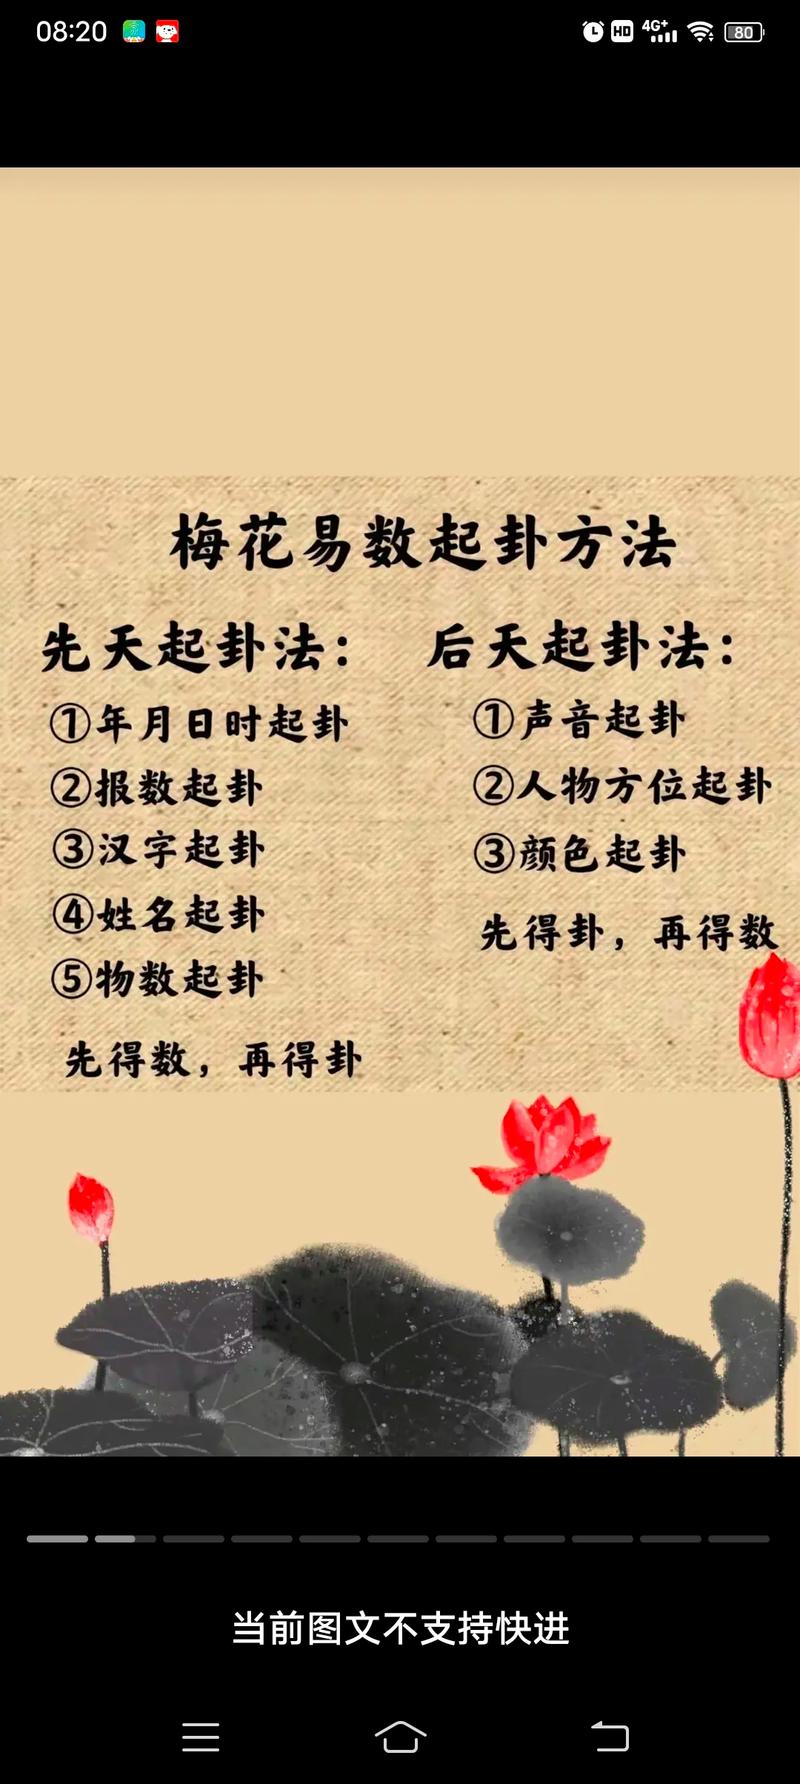 08:20
HD 4G+ 80
梅花易数起卦方法
先天起卦法：
①年月日时起卦
②报数起卦
③汉字起卦
④姓名起卦
⑤物数起卦
先得数，再得卦
后天起卦法：
①声音起卦
②人物方位起卦
③颜色起卦
先得卦，再得数
当前图文不支持快进